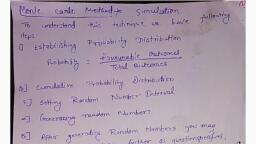 Monte Carlo Method for Simulation
To understand this technique we have following
steps
1] Establishing Probability Distribution
Probability = Favourable Outcomes
Total Outcomes
2] Cumulative Probability Distribution
3] Setting Random Number Interval
4] Generating random Numbers
5] After generating Random Numbers you may
further as question